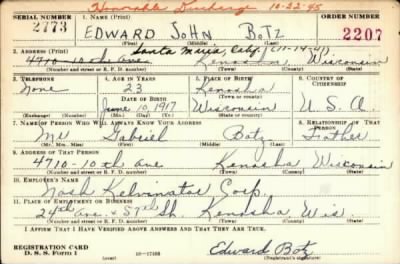 Honorable Discharge 10-22-45
SERIAL NUMBER 1. NAME (Print) ORDER NUMBER
2773 EDWARD JOHN BOTZ 2207
(First) (Middle) (Last)
Santa Maria, Calif. (11-14-41)
2. ADDRESS (Print)
4710-10th Ave. Kenosha Wisconsin
(Number and street or R. F. D. number) (Town) (County) (State)
3. TELEPHONE 4. AGE IN YEARS 5. PLACE OF BIRTH 6. COUNTRY OF CITIZENSHIP
None 23 Kenosha
(Town or county)
DATE OF BIRTH
June 10, 1917 Wisconsin U. S. A.
(Exchange) (Number) (Mo.) (Day) (Yr.) (State or country)
7. NAME OF PERSON WHO WILL ALWAYS KNOW YOUR ADDRESS 8. RELATIONSHIP OF THAT PERSON
Mr Gabriel Botz Father
(Mr., Mrs., Miss) (First) (Middle) (Last)
9. ADDRESS OF THAT PERSON
4710-10th Ave Kenosha Wisconsin
(Number and street or R. F. D. number) (Town) (County) (State)
10. EMPLOYER'S NAME
Nash Kelvinator Corp.
11. PLACE OF EMPLOYMENT OR BUSINESS
24th Ave. & 57th St. Kenosha Wis
(Number and street or R. F. D. number) (Town) (County) (State)
I AFFIRM THAT I HAVE VERIFIED ABOVE ANSWERS AND THAT THEY ARE TRUE.
REGISTRATION CARD
D. S. S. Form 1 Edward Botz
(Registrant's signature)